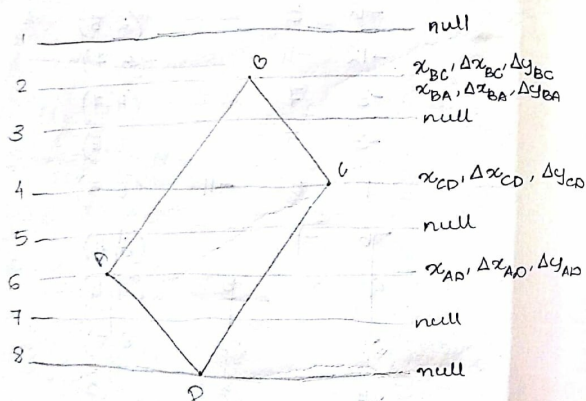 1 null
B
2 x_BC, Δx_BC, Δy_BC
x_BA, Δx_BA, Δy_BA
3 null
C
4 x_CD, Δx_CD, Δy_CD
5 null
A
6 x_AD, Δx_AD, Δy_AD
7 null
8 null
D